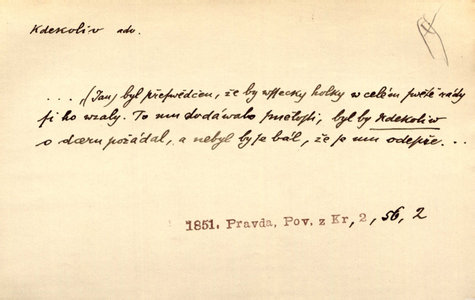 Kdekoliv adv.
..., (Jan) byl přefwědčen, že by wssecky holky w celém swětě rády
si ho wzaly. To mu dodáwalo smělosti, byl by kdekoliw
o dceru požádal, a nebyl by se bál, že se mu odepře...
1851. Pravda, Pov. z Kr, 2, 56, 2